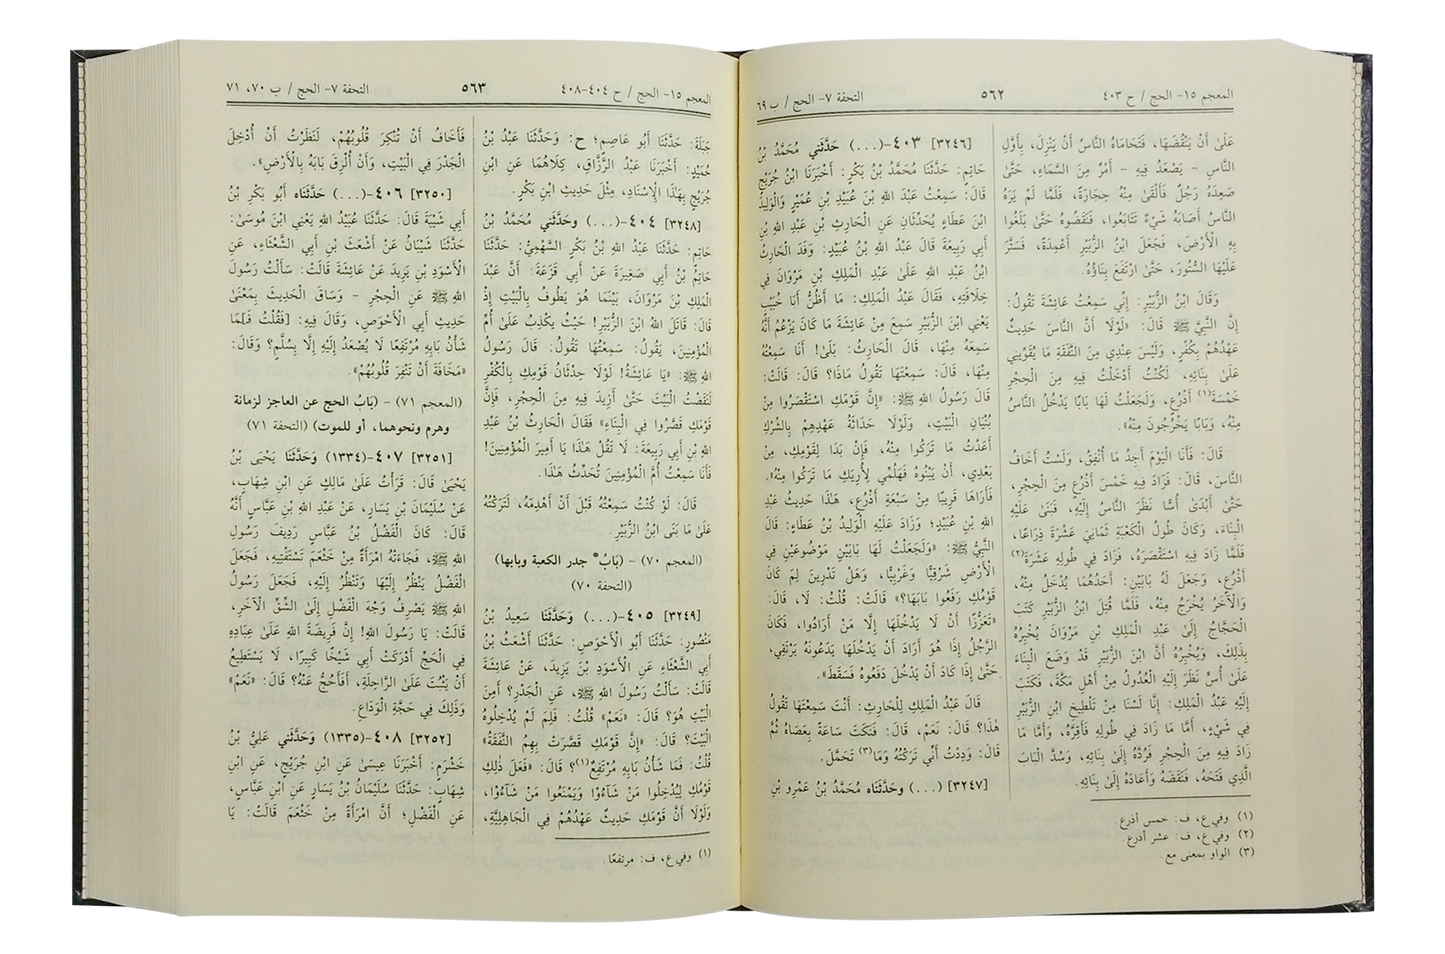 المعجم ١٥- الحج / ح ٤٠٣ ٥٦٢ التحفة ٧- الحج / ب ٦٩
عَلَىٰ أَنْ يَنْقُضَهَا، فَتَحَامَاهُ النَّاسُ أَنْ يَنْزِلَ، بِأَوَّلِ
النَّاسِ - يَصْعَدُ فِيهِ - أَمْرٌ مِنَ السَّمَاءِ، حَتَّىٰ
صَعِدَهُ رَجُلٌ فَأَلْقَىٰ مِنْهُ حِجَارَةً، فَلَمَّا لَمْ يَرَهُ
النَّاسُ أَصَابَهُ شَيْءٌ تَتَابَعُوا، فَنَقَضُوهُ حَتَّىٰ بَلَغُوا
بِهِ الْأَرْضَ، فَجَعَلَ ابْنُ الزُّبَيْرِ أَعْمِدَةً، فَسَتَّرَ
عَلَيْهَا السُّتُورَ، حَتَّىٰ ارْتَفَعَ بِنَاؤُهُ.
وَقَالَ ابْنُ الزُّبَيْرِ: إِنِّي سَمِعْتُ عَائِشَةَ تَقُولُ:
إِنَّ النَّبِيَّ ﷺ قَالَ: «لَوْلَا أَنَّ النَّاسَ حَدِيثٌ
عَهْدُهُمْ بِكُفْرٍ، وَلَيْسَ عِنْدِي مِنَ النَّفَقَةِ مَا يُقَوِّينِي
عَلَىٰ بِنَائِهِ، لَكُنْتُ أَدْخَلْتُ فِيهِ مِنَ الْحِجْرِ
خَمْسَةَ(١) أَذْرُعٍ، وَلَجَعَلْتُ لَهَا بَابًا يَدْخُلُ النَّاسُ
مِنْهُ، وَبَابًا يَخْرُجُونَ مِنْهُ».
قَالَ: فَأَنَا الْيَوْمَ أَجِدُ مَا أُنْفِقُ، وَلَسْتُ أَخَافُ
النَّاسَ، قَالَ: فَزَادَ فِيهِ خَمْسَ أَذْرُعٍ مِنَ الْحِجْرِ،
حَتَّىٰ أَبْدَىٰ أُسًّا نَظَرَ النَّاسُ إِلَيْهِ، فَبَنَىٰ عَلَيْهِ
الْبِنَاءَ، وَكَانَ طُولُ الْكَعْبَةِ ثَمَانِيَ عَشْرَةَ ذِرَاعًا،
فَلَمَّا زَادَ فِيهِ اسْتَقْصَرَهُ، فَزَادَ فِي طُولِهِ عَشْرَةَ(٢)
أَذْرُعٍ، وَجَعَلَ لَهُ بَابَيْنِ: أَحَدُهُمَا يُدْخَلُ مِنْهُ،
وَالْآخَرُ يُخْرَجُ مِنْهُ، فَلَمَّا قُتِلَ ابْنُ الزُّبَيْرِ كَتَبَ
الْحَجَّاجُ إِلَىٰ عَبْدِ الْمَلِكِ بْنِ مَرْوَانَ يُخْبِرُهُ
بِذَلِكَ، وَيُخْبِرُهُ أَنَّ ابْنَ الزُّبَيْرِ قَدْ وَضَعَ الْبِنَاءَ
عَلَىٰ أُسٍّ نَظَرَ إِلَيْهِ الْعُدُولُ مِنْ أَهْلِ مَكَّةَ، فَكَتَبَ
إِلَيْهِ عَبْدُ الْمَلِكِ: إِنَّا لَسْنَا مِنْ تَلْطِيخِ ابْنِ الزُّبَيْرِ
فِي شَيْءٍ، أَمَّا مَا زَادَ فِي طُولِهِ فَأَقِرَّهُ، وَأَمَّا مَا
زَادَ فِيهِ مِنَ الْحِجْرِ فَرُدَّهُ إِلَىٰ بِنَائِهِ، وَسُدَّ الْبَابَ
الَّذِي فَتَحَهُ، فَنَقَضَهُ وَأَعَادَهُ إِلَىٰ بِنَائِهِ.
[٣٢٤٦] ٤٠٣-(...) حَدَّثَنِي مُحَمَّدُ بْنُ
حَاتِمٍ: حَدَّثَنَا مُحَمَّدُ بْنُ بَكْرٍ: أَخْبَرَنَا ابْنُ جُرَيْجٍ
قَالَ: سَمِعْتُ عَبْدَ اللهِ بْنَ عُبَيْدِ بْنِ عُمَيْرٍ وَالْوَلِيدَ
ابْنَ عَطَاءٍ يُحَدِّثَانِ عَنِ الْحَارِثِ بْنِ عَبْدِ اللهِ بْنِ
أَبِي رَبِيعَةَ قَالَ عَبْدُ اللهِ بْنُ عُبَيْدٍ: وَفَدَ الْحَارِثُ
ابْنُ عَبْدِ اللهِ عَلَىٰ عَبْدِ الْمَلِكِ بْنِ مَرْوَانَ فِي
خِلَافَتِهِ، فَقَالَ عَبْدُ الْمَلِكِ: مَا أَظُنُّ أَبَا خُبَيْبٍ
يَعْنِي ابْنَ الزُّبَيْرِ سَمِعَ مِنْ عَائِشَةَ مَا كَانَ يَزْعُمُ أَنَّهُ
سَمِعَهُ مِنْهَا، قَالَ الْحَارِثُ: بَلَىٰ! أَنَا سَمِعْتُهُ
مِنْهَا، قَالَ: سَمِعْتَهَا تَقُولُ مَاذَا؟ قَالَ: قَالَتْ:
قَالَ رَسُولُ اللهِ ﷺ: «إِنَّ قَوْمَكِ اسْتَقْصَرُوا مِنْ
بُنْيَانِ الْبَيْتِ، وَلَوْلَا حَدَاثَةُ عَهْدِهِمْ بِالشِّرْكِ
أَعَدْتُ مَا تَرَكُوا مِنْهُ، فَإِنْ بَدَا لِقَوْمِكِ، مِنْ
بَعْدِي، أَنْ يَبْنُوهُ فَهَلُمِّي لِأُرِيَكِ مَا تَرَكُوا مِنْهُ».
فَأَرَاهَا قَرِيبًا مِنْ سَبْعَةِ أَذْرُعٍ، هَٰذَا حَدِيثُ عَبْدِ
اللهِ بْنِ عُبَيْدٍ؛ وَزَادَ عَلَيْهِ الْوَلِيدُ بْنُ عَطَاءٍ: قَالَ
النَّبِيُّ ﷺ: «وَلَجَعَلْتُ لَهَا بَابَيْنِ مَوْضُوعَيْنِ فِي
الْأَرْضِ شَرْقِيًّا وَغَرْبِيًّا، وَهَلْ تَدْرِينَ لِمَ كَانَ
قَوْمُكِ رَفَعُوا بَابَهَا؟» قَالَتْ: قُلْتُ: لَا، قَالَ:
«تَعَزُّزًا أَنْ لَا يَدْخُلَهَا إِلَّا مَنْ أَرَادُوا، فَكَانَ
الرَّجُلُ إِذَا هُوَ أَرَادَ أَنْ يَدْخُلَهَا يَدَعُونَهُ يَرْتَقِي،
حَتَّىٰ إِذَا كَادَ أَنْ يَدْخُلَ دَفَعُوهُ فَسَقَطَ».
قَالَ عَبْدُ الْمَلِكِ لِلْحَارِثِ: أَنْتَ سَمِعْتَهَا تَقُولُ
هَٰذَا؟ قَالَ: نَعَمْ، قَالَ: فَنَكَتَ سَاعَةً بِعَصَاهُ ثُمَّ
قَالَ: وَدِدْتُ أَنِّي تَرَكْتُهُ وَمَا(٣) تَحَمَّلَ.
[٣٢٤٧] (...) وَحَدَّثَنَاه مُحَمَّدُ بْنُ عَمْرِو بْنِ
(١) وفي ع، ف: خمس أذرع
(٢) وفي ع، ف: عشر أذرع.
(٣) الواو بمعنى مع.
المعجم ١٥- الحج / ح ٤٠٤-٤٠٨ ٥٦٣ التحفة ٧- الحج / ب ٧٠، ٧١
جَبَلَةَ: حَدَّثَنَا أَبُو عَاصِمٍ؛ ح: وَحَدَّثَنَا عَبْدُ بْنُ
حُمَيْدٍ: أَخْبَرَنَا عَبْدُ الرَّزَّاقِ، كِلَاهُمَا عَنِ ابْنِ
جُرَيْجٍ بِهَٰذَا الْإِسْنَادِ، مِثْلَ حَدِيثِ ابْنِ بَكْرٍ.
[٣٢٤٨] ٤٠٤-(...) وحَدَّثَنِي مُحَمَّدُ بْنُ
حَاتِمٍ: حَدَّثَنَا عَبْدُ اللهِ بْنُ بَكْرٍ السَّهْمِيُّ: حَدَّثَنَا
حَاتِمُ بْنُ أَبِي صَغِيرَةَ عَنْ أَبِي قَزَعَةَ: أَنَّ عَبْدَ
الْمَلِكِ بْنَ مَرْوَانَ، بَيْنَمَا هُوَ يَطُوفُ بِالْبَيْتِ إِذْ
قَالَ: قَاتَلَ اللهُ ابْنَ الزُّبَيْرِ! حَيْثُ يَكْذِبُ عَلَىٰ أُمِّ
الْمُؤْمِنِينَ، يَقُولُ: سَمِعْتُهَا تَقُولُ: قَالَ رَسُولُ
اللهِ ﷺ: «يَا عَائِشَةُ! لَوْلَا حِدْثَانُ قَوْمِكِ بِالْكُفْرِ
لَنَقَضْتُ الْبَيْتَ حَتَّىٰ أَزِيدَ فِيهِ مِنَ الْحِجْرِ، فَإِنَّ
قَوْمَكِ قَصَّرُوا فِي الْبِنَاءِ» فَقَالَ الْحَارِثُ بْنُ عَبْدِ
اللهِ بْنِ أَبِي رَبِيعَةَ: لَا تَقُلْ هَٰذَا يَا أَمِيرَ الْمُؤْمِنِينَ!
فَأَنَا سَمِعْتُ أُمَّ الْمُؤْمِنِينَ تُحَدِّثُ هَٰذَا.
قَالَ: لَوْ كُنْتُ سَمِعْتُهُ قَبْلَ أَنْ أَهْدِمَهُ، لَتَرَكْتُهُ
عَلَىٰ مَا بَنَى ابْنُ الزُّبَيْرِ.
(المعجم ٧٠) - (بَابُ* جدر الكعبة وبابها)
(التحفة ٧٠)
[٣٢٤٩] ٤٠٥-(...) وَحَدَّثَنَا سَعِيدُ بْنُ
مَنْصُورٍ: حَدَّثَنَا أَبُو الْأَحْوَصِ: حَدَّثَنَا أَشْعَثُ بْنُ
أَبِي الشَّعْثَاءِ عَنِ الْأَسْوَدِ بْنِ يَزِيدَ، عَنْ عَائِشَةَ
قَالَتْ: سَأَلْتُ رَسُولَ اللهِ ﷺ، عَنِ الْجَدْرِ؟ أَمِنَ
الْبَيْتِ هُوَ؟ قَالَ: «نَعَمْ» قُلْتُ: فَلِمَ لَمْ يُدْخِلُوهُ
الْبَيْتَ؟ قَالَ: «إِنَّ قَوْمَكِ قَصَّرَتْ بِهِمُ النَّفَقَةُ»
قُلْتُ: فَمَا شَأْنُ بَابِهِ مُرْتَفِعٌ(١)؟ قَالَ: «فَعَلَ ذَٰلِكِ
قَوْمُكِ لِيُدْخِلُوا مَنْ شَاءُوْا وَيَمْنَعُوا مَنْ شَاءُوْا،
وَلَوْلَا أَنَّ قَوْمَكِ حَدِيثٌ عَهْدُهُمْ فِي الْجَاهِلِيَّةِ،
(١) وفي ع، ف: مرتفعًا.
فَأَخَافُ أَنْ تُنْكِرَ قُلُوبُهُمْ، لَنَظَرْتُ أَنْ أُدْخِلَ
الْجَدْرَ فِي الْبَيْتِ، وَأَنْ أُلْزِقَ بَابَهُ بِالْأَرْضِ».
[٣٢٥٠] ٤٠٦-(...) حَدَّثَنَاه أَبُو بَكْرِ بْنُ
أَبِي شَيْبَةَ قَالَ: حَدَّثَنَا عُبَيْدُ اللهِ يَعْنِي ابْنَ مُوسَىٰ:
حَدَّثَنَا شَيْبَانُ عَنْ أَشْعَثَ بْنِ أَبِي الشَّعْثَاءِ، عَنِ
الْأَسْوَدِ بْنِ يَزِيدَ عَنْ عَائِشَةَ قَالَتْ: سَأَلْتُ رَسُولَ
اللهِ ﷺ عَنِ الْحِجْرِ - وَسَاقَ الْحَدِيثَ بِمَعْنَىٰ
حَدِيثِ أَبِي الْأَحْوَصِ، وَقَالَ فِيهِ: [فَقُلْتُ فَ]مَا
شَأْنُ بَابِهِ مُرْتَفِعًا لَا يُصْعَدُ إِلَيْهِ إِلَّا بِسُلَّمٍ؟ وَقَالَ:
«مَخَافَةَ أَنْ تَنْفِرَ قُلُوبُهُمْ».
(المعجم ٧١) - (بَابُ الحج عن العاجز لزمانة
وهرم ونحوهما، أو للموت) (التحفة ٧١)
[٣٢٥١] ٤٠٧-(١٣٣٤) وَحَدَّثَنَا يَحْيَى بْنُ
يَحْيَىٰ قَالَ: قَرَأْتُ عَلَىٰ مَالِكٍ عَنِ ابْنِ شِهَابٍ،
عَنْ سُلَيْمَانَ بْنِ يَسَارٍ، عَنْ عَبْدِ اللهِ بْنِ عَبَّاسٍ أَنَّهُ
قَالَ: كَانَ الْفَضْلُ بْنُ عَبَّاسٍ رَدِيفَ رَسُولِ
اللهِ ﷺ، فَجَاءَتْهُ امْرَأَةٌ مِنْ خَثْعَمَ تَسْتَفْتِيهِ، فَجَعَلَ
الْفَضْلُ يَنْظُرُ إِلَيْهَا وَتَنْظُرُ إِلَيْهِ، فَجَعَلَ رَسُولُ
اللهِ ﷺ يَصْرِفُ وَجْهَ الْفَضْلِ إِلَى الشِّقِّ الْآخَرِ،
قَالَتْ: يَا رَسُولَ اللهِ! إِنَّ فَرِيضَةَ اللهِ عَلَىٰ عِبَادِهِ
فِي الْحَجِّ أَدْرَكَتْ أَبِي شَيْخًا كَبِيرًا، لَا يَسْتَطِيعُ
أَنْ يَثْبُتَ عَلَى الرَّاحِلَةِ، أَفَأَحُجُّ عَنْهُ؟ قَالَ: «نَعَمْ»
وَذَلِكَ فِي حَجَّةِ الْوَدَاعِ.
[٣٢٥٢] ٤٠٨-(١٣٣٥) وَحَدَّثَنِي عَلِيُّ بْنُ
خَشْرَمٍ: أَخْبَرَنَا عِيسَىٰ عَنِ ابْنِ جُرَيْجٍ، عَنِ ابْنِ
شِهَابٍ: حَدَّثَنَا سُلَيْمَانُ بْنُ يَسَارٍ عَنِ ابْنِ عَبَّاسٍ،
عَنِ الْفَضْلِ؛ أَنَّ امْرَأَةً مِنْ خَثْعَمَ قَالَتْ: يَا